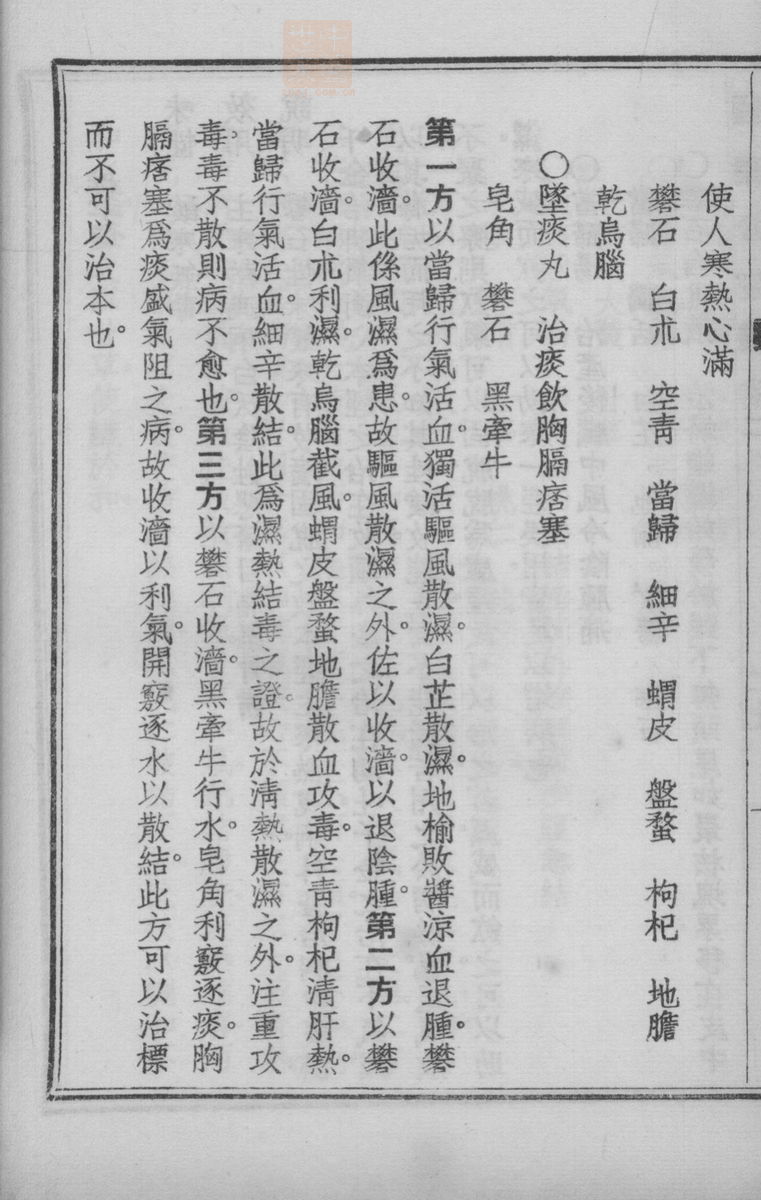 使人寒熱心滿
礬石　白朮　空靑　當歸　細辛　蝟皮　盤蝥　枸杞　地膽
乾烏腦
〇墜痰丸　治痰飲胸膈痞塞
皂角　礬石　黑牽牛
第一方以當歸行氣活血獨活驅風散濕。白芷散濕。地榆敗醬涼血退腫。礬
石收濇。此係風濕爲患。故驅風散濕之外。佐以收濇。以退陰腫。第二方以礬
石收濇。白朮利濕。乾烏腦截風。蝟皮盤蝥地膽散血攻毒。空靑枸杞淸肝熱。
當歸行氣活血。細辛散結。此爲濕熱結毒之證。故於淸熱散濕之外。注重攻
毒。毒不散則病不愈也。第三方以礬石收濇。黑牽牛行水。皂角利竅逐痰。胸
膈痞塞爲痰盛氣阻之病。故收濇以利氣。開竅逐水以散結。此方可以治標
而不可以治本也。